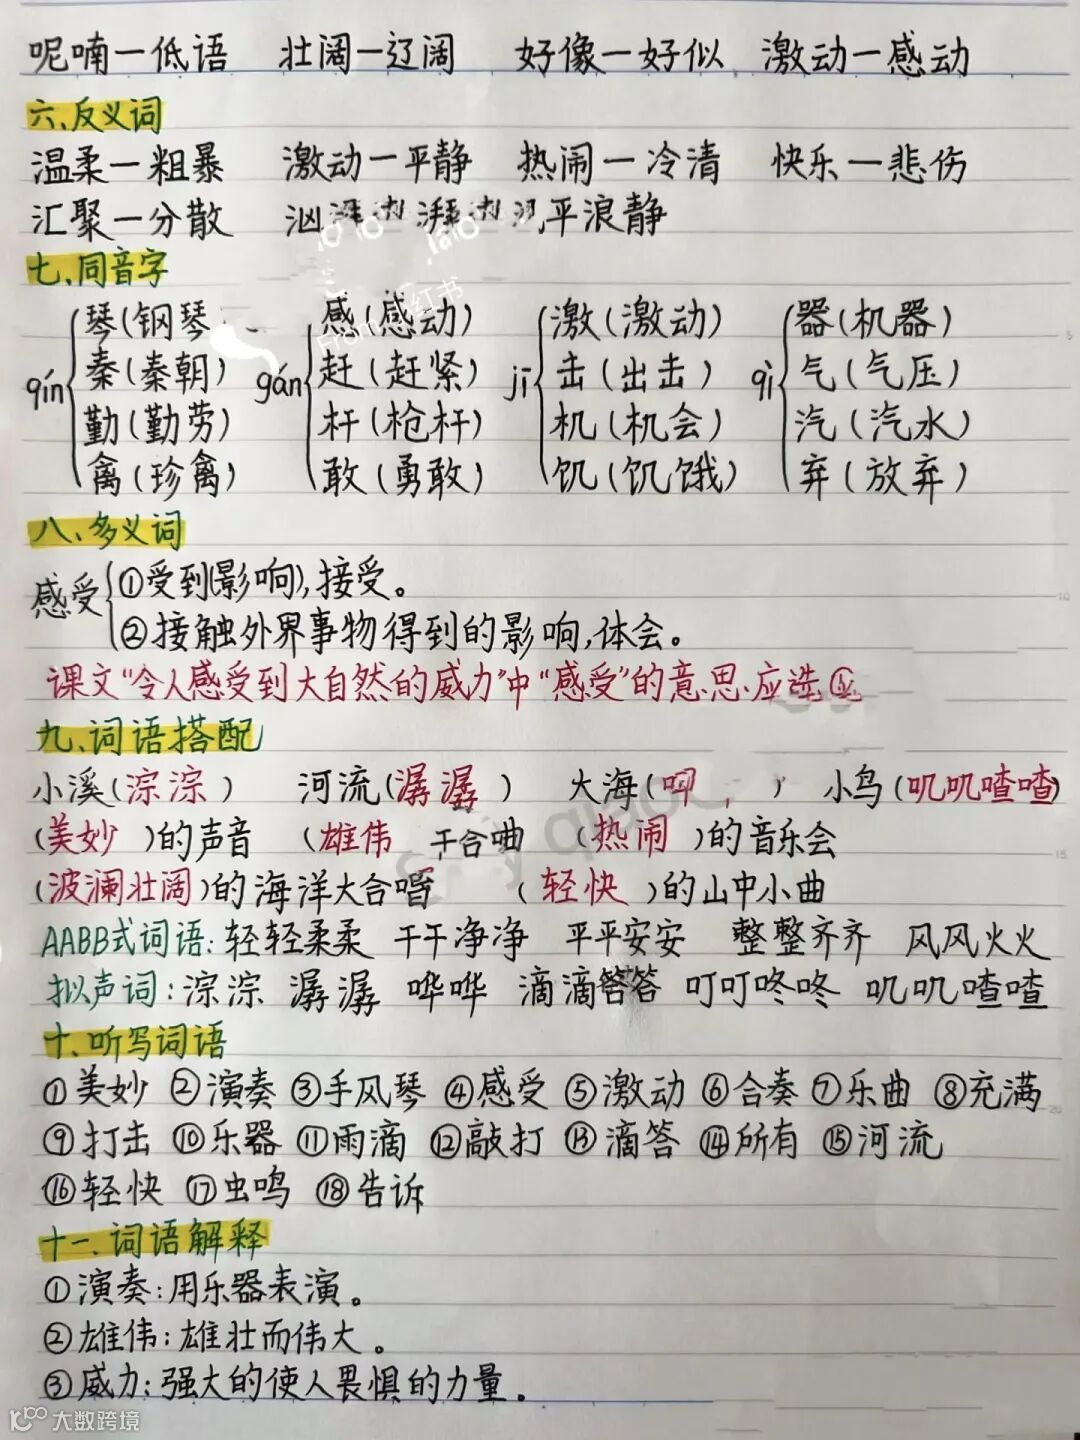 呢喃—低语 壮阔—辽阔 好像—好似 激动—感动
六、反义词
温柔—粗暴 激动—平静 热闹—冷清 快乐—悲伤
汇聚—分散 汹 平浪静
七、同音字
qín 琴(钢琴 gǎn 感(感动) jī 激(激动) qì 器(机器)
秦(秦朝) 赶(赶紧) 击(出击) 气(气压)
勤(勤劳) 杆(枪杆) 机(机会) 汽(汽水)
禽(珍禽) 敢(勇敢) 饥(饥饿) 弃(放弃)
八、多义词
感受 ①受到(影响),接受。
②接触外界事物得到的影响,体会。
课文“令人感受到大自然的威力”中“感受”的意思应选
九、词语搭配
小溪(淙淙) 河流(潺潺) 大海( ) 小鸟(叽叽喳喳)
(美妙)的声音 (雄伟 合 曲 (热闹)的音乐会
(波澜壮阔)的海洋大合唱 (轻快)的山中小曲
AABB式词语:轻轻柔柔 干干净净 平平安安 整整齐齐 风风火火
拟声词:淙淙 潺潺 哗哗 滴滴答答 叮叮咚咚 叽叽喳喳
十、听写词语
①美妙 ②演奏 ③手风琴 ④感受 ⑤激动 ⑥合奏 ⑦乐曲 ⑧充满
⑨打击 ⑩乐器 ⑪雨滴 ⑫敲打 ⑬滴答 ⑭所有 ⑮河流
⑯轻快 ⑰虫鸣 ⑱告诉
十一、词语解释
①演奏:用乐器表演。
②雄伟:雄壮而伟大。
③威力:强大的使人畏惧的力量。
大数跨境